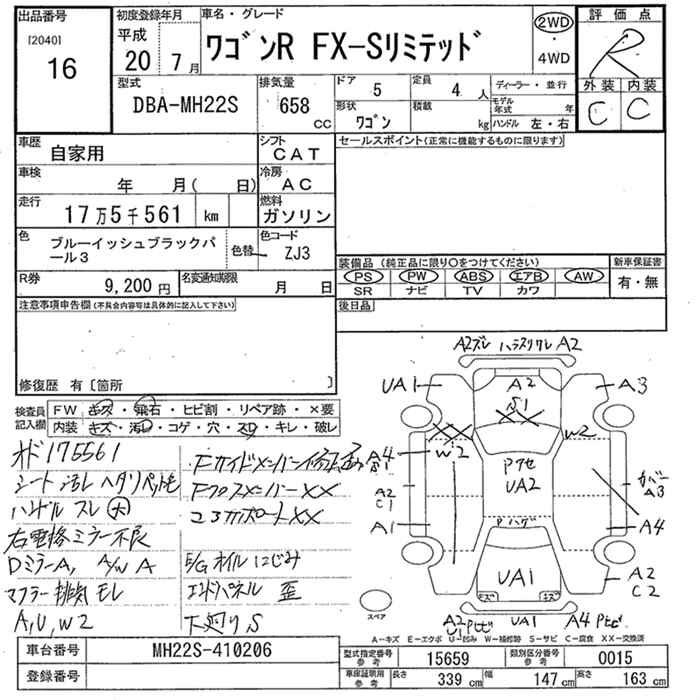 出品番号
[2040]
16
初度登録年月
平成
20年 7月
車名・グレード
ワゴンR FX-Sリミテッド
2WD
4WD
評価点
R
外装 内装
C C
型式
DBA-MH22S
排気量
658 CC
ドア 5
定員 4 人
形状 ワゴン
積載 kg
ディーラー・並行
モデル年式 年
ハンドル 左・右
車歴
自家用
シフト
CAT
車検
年 月( 日)
冷房
AC
走行
17万5千561 km
燃料
ガソリン
色
ブルーイッシュブラックパール3
色替
色コード
ZJ3
R券
9,200円
名変通知期限
月 日
セールスポイント(正常に機能するものに限ります)
装備品(純正品に限り○をつけてください)
PS PW ABS エアB AW
SR ナビ TV カワ
新車保証書
有・無
後日品
注意事項申告欄(不具合内容等は具体的に記入して下さい)
修復歴 有〔箇所 〕
検査員記入欄
FW キズ・飛石・ヒビ割・リペア跡・×要
内装 キズ・汚れ・コゲ・穴・スリ・キレ・破レ
オド 175561
シート 汚レ ヘタリ
ハンドル スレ 大
右電格ミラー不良
Dミラー A, A/W A
マフラー排気モレ
A, U, W2
XX
XX
XX
E/Gオイルにじみ
エンドパネル 歪
下廻りS
A2ズレ
A2
UA1
A2
S1
XX
A3
XX
W2
W2
A4
A2
C1
A1
UA2
カバー
A3
A4
UA1
キズ
キズ
A2
C2
スペア
A2
U1
UA1
A4
A-キズ E-エクボ U-凹み W-補修跡 S-サビ C-腐食 XX-交換済
車台番号
MH22S-410206
登録番号
型式指定番号 参考
15659
類別区分番号 参考
0015
車庫証明用 参考
長さ 339 cm
幅 147 cm
高さ 163 cm